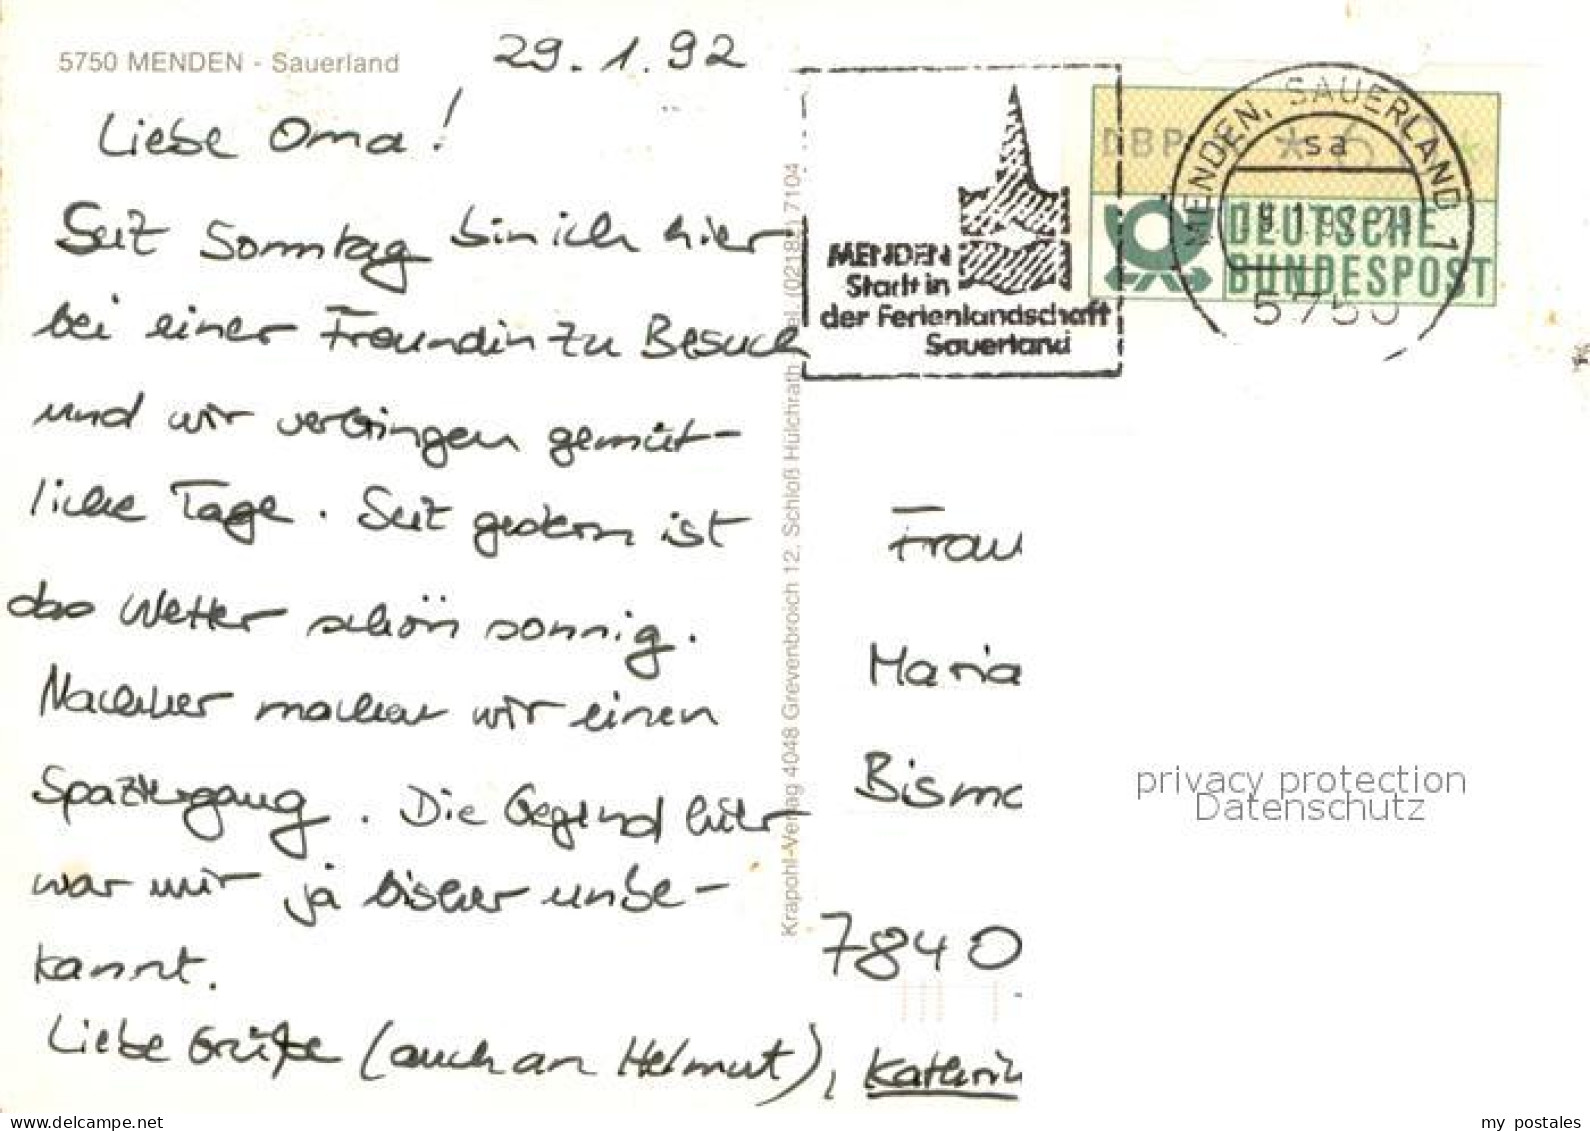 5750 MENDEN - Sauerland
29.1.92
Liebe Oma!
Seit Sonntag bin ich hier
bei einer Freundin zu Besuch
und wir verbringen gemüt-
liche Tage. Seit gestern ist
das Wetter schön sonnig.
Nachher machen wir einen
Spaziergang. Die Gegend hier
war mir ja bisher unbe-
kannt.
Liebe Grüße (auch an Helmut), Kathrin
Krapohl-Verlag 4048 Grevenbroich 12, Schloß Hülchrath 7104
MENDEN
Stadt in
der Ferienlandschaft
Sauerland
DBP
DEUTSCHE
BUNDESPOST
MENDEN, SAUERLAND 1
sa
5750
Frau
Maria
Bismc
7840
privacy protection
Datenschutz
www.delcampe.net
my postales